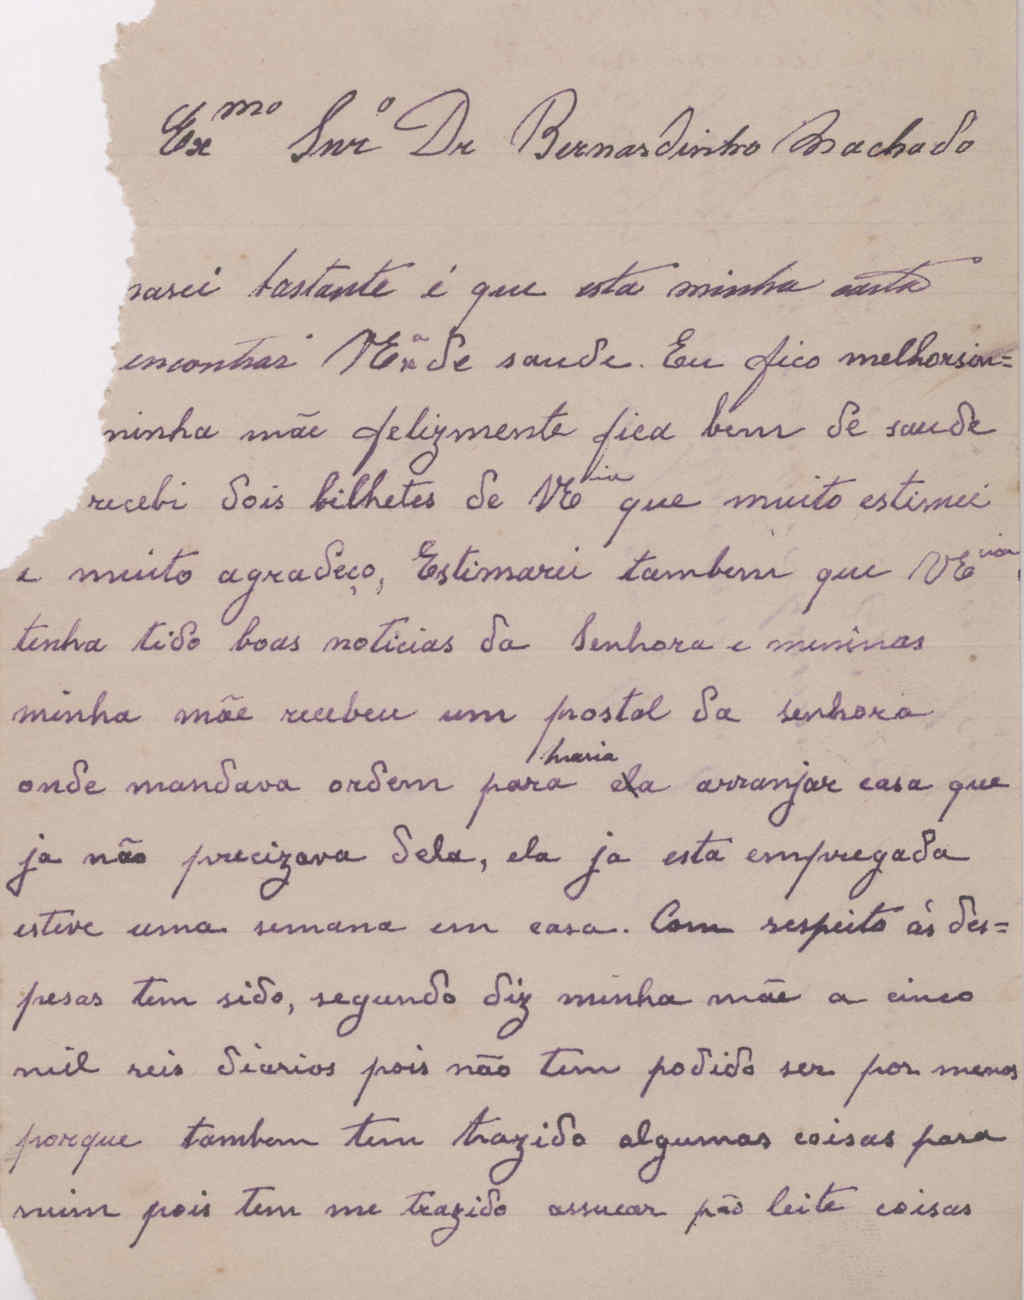 Exmo Snro Dr Bernardinho Machado
marei bastante é que esta minha carta
encontrar VExa de saude. Eu fico melhorsin=
minha mãe felizmente fica bem de saude
recebi dois bilhetes de VEcia que muito estimei
e muito agradeço, Estimarei tambem que VEcia
tenha tido boas noticias da Senhora e meninas
minha mãe recebeu um postal da senhora
Maria
onde mandava ordem para ela arranjar casa que
ja não precizava dela, ela ja esta empregada
esteve uma semana em casa. Com respeito ás des=
pesas tem sido, segundo diz minha mãe a cinco
mil reis diarios pois não tem podido ser por menos
porque tambem tem trazido algumas coisas para
mim pois tem me trazido assucar pão leite coisas